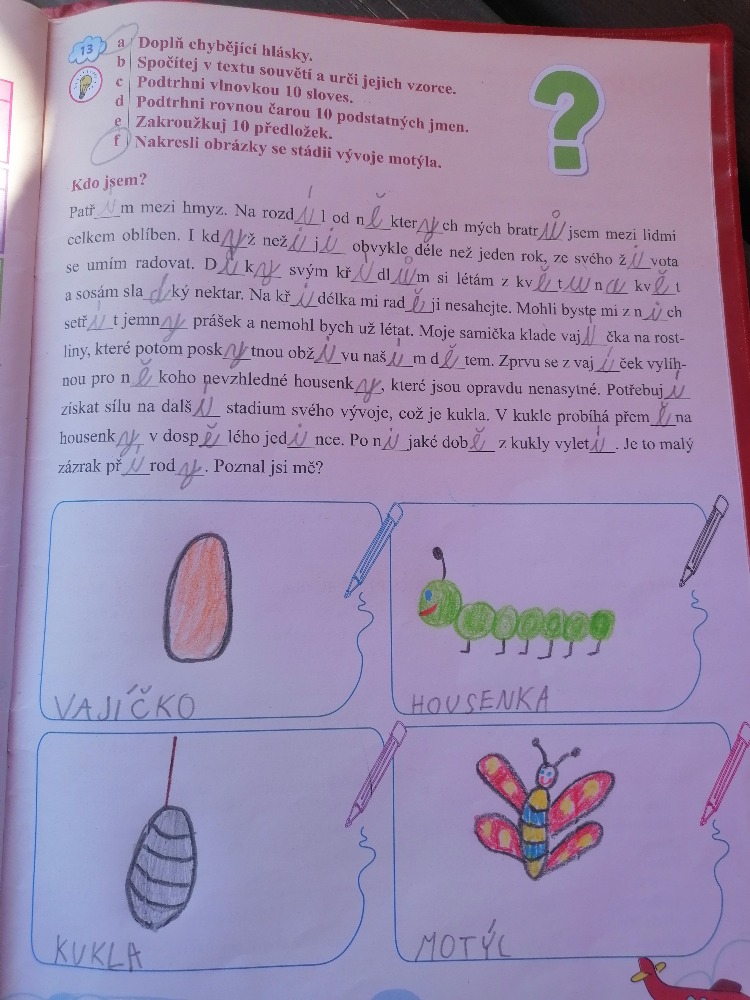 13 a Doplň chybějící hlásky.
b Spočítej v textu souvětí a urči jejich vzorce.
c Podtrhni vlnovkou 10 sloves.
d Podtrhni rovnou čarou 10 podstatných jmen.
e Zakroužkuj 10 předložek.
f Nakresli obrázky se stádii vývoje motýla.
?
Kdo jsem?
Patřím mezi hmyz. Na rozdíl od některých mých bratrů jsem mezi lidmi
celkem oblíben. I když nežiji obvykle déle než jeden rok, ze svého života
se umím radovat. Díky svým křídlům si létám z květu na květ
a sosám sladký nektar. Na křídélka mi raději nesahejte. Mohli byste mi z nich
setřít jemný prášek a nemohl bych už létat. Moje samička klade vajíčka na rost-
liny, které potom poskytnou obživu našim dětem. Zprvu se z vajíček vylíh-
nou pro někoho nevzhledné housenky, které jsou opravdu nenasytné. Potřebují
získat sílu na další stadium svého vývoje, což je kukla. V kukle probíhá přeměna
housenky v dospělého jedince. Po nějaké době z kukly vyletí. Je to malý
zázrak přírody. Poznal jsi mě?
VAJÍČKO
HOUSENKA
KUKLA
MOTÝL